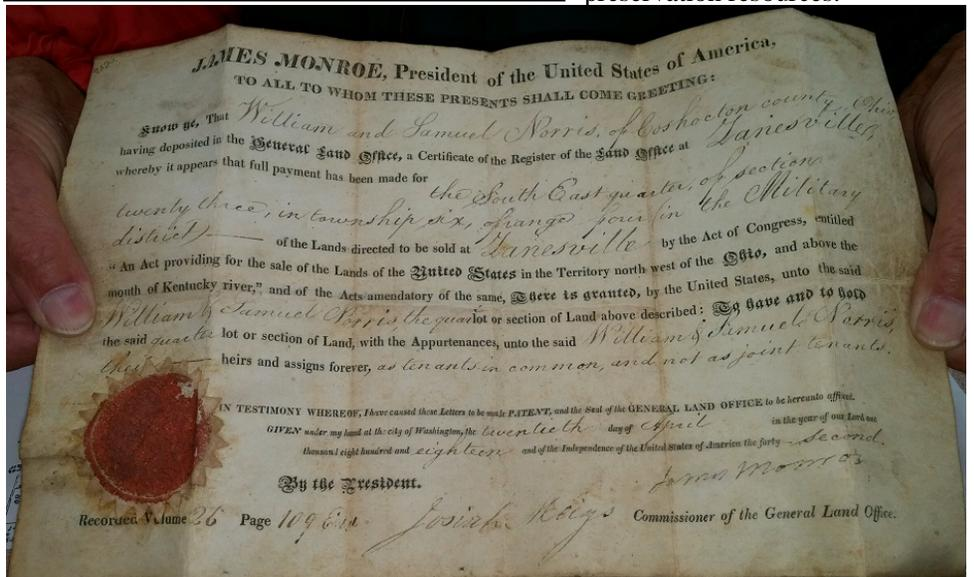 preservation resources.
JAMES MONROE, President of the United States of America,
TO ALL TO WHOM THESE PRESENTS SHALL COME GREETING:
Know ye, That William and Samuel Norris, of Coshocton county, Ohio
having deposited in the General Land Office, a Certificate of the Register of the Land Office at Zanesville,
whereby it appears that full payment has been made for the South East quarter, of section
twenty three, in township six, of range four in the Military
district) of the Lands directed to be sold at Zanesville by the Act of Congress, entitled
"An Act providing for the sale of the Lands of the United States in the Territory north west of the Ohio, and above the
mouth of Kentucky river," and of the Acts amendatory of the same, There is granted, by the United States, unto the said
William & Samuel Norris, the quarter lot or section of Land above described: To have and to hold
the said quarter lot or section of Land, with the Appurtenances, unto the said William & Samuel Norris,
their heirs and assigns forever, as tenants in common, and not as joint tenants.
IN TESTIMONY WHEREOF, I have caused these Letters to be made PATENT, and the Seal of the GENERAL LAND OFFICE to be hereunto affixed.
GIVEN under my hand at the city of Washington, the twentieth day of April in the year of our Lord one
thousand eight hundred and eighteen and of the Independence of the United States of America the forty second.
James Monroe
By the President.
Recorded Volume 26 Page 109 Josiah Meigs Commissioner of the General Land Office.